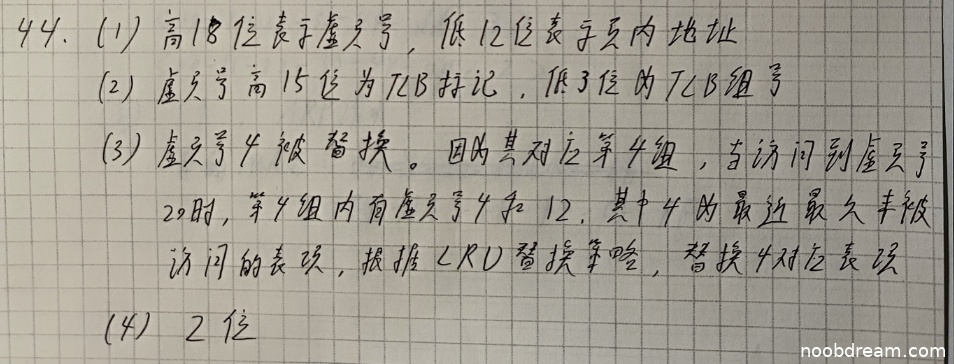 44. (1) 高18位表示虚页号，低12位表示页内地址
(2) 虚页号高15位为TLB标记，低3位为TLB组号
(3) 虚页号4被替换。因为其对应第4组，当访问到虚页号
20时，第4组内有虚页号4和12，其中4为最近最久未被
访问的表项，根据LRU替换策略，替换4对应表项
(4) 2位
noobdream.com